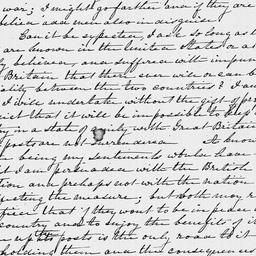 war; I might go farther and if they are
believe aid men also in disguise
Can it be expected, I ask so long as t
are known in the United States or a
ly believed, and suffered with impun
Britain that there ever will or can b
iality between the two countries? I
I will undertake without the gift of pro
dict that it will be impossible to keep
y in a state of amity with Great Britain
posts are not surrendered It know
being my sentiments would have
t I am persuaded with the British
tion and perhaps not with the nation
effecting the measure; but both may r
fied that if they want to be in peace
country and to enjoy the benefits of it
up posts is the only road to it
holding them and the consequences